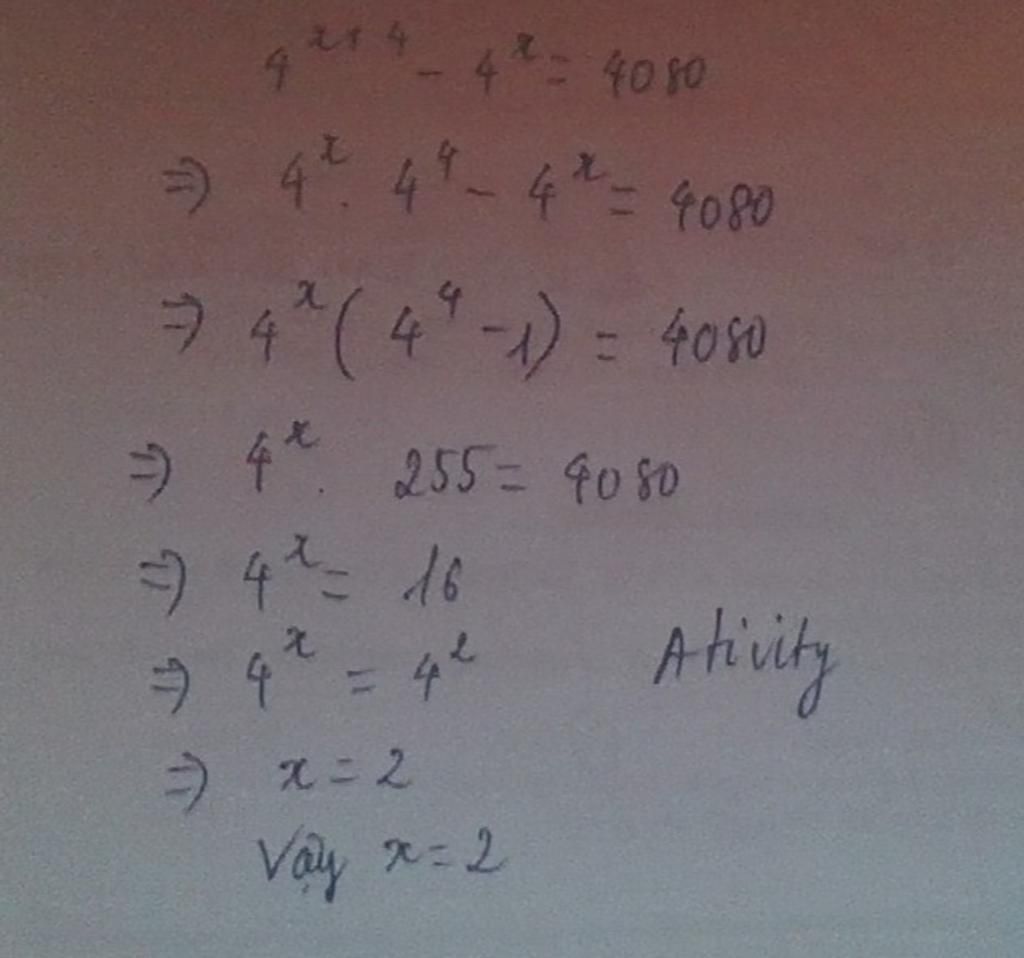 4^{x+4} - 4^x = 4080
⇒ 4^x . 4^4 - 4^x = 4080
⇒ 4^x ( 4^4 - 1) = 4080
⇒ 4^x . 255 = 4080
⇒ 4^x = 16
⇒ 4^x = 4^2
Ativity
⇒ x = 2
Vậy x = 2